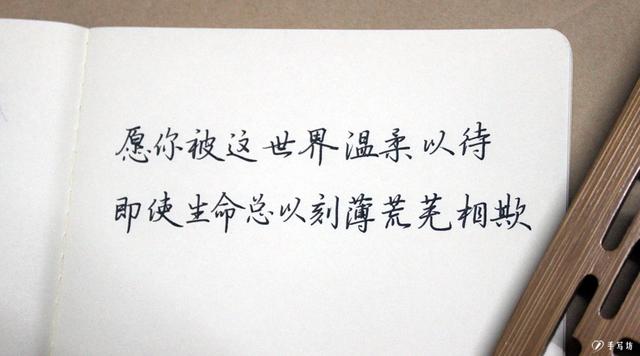 愿你被这世界温柔以待
即使生命总以刻薄荒芜相欺
手写坊